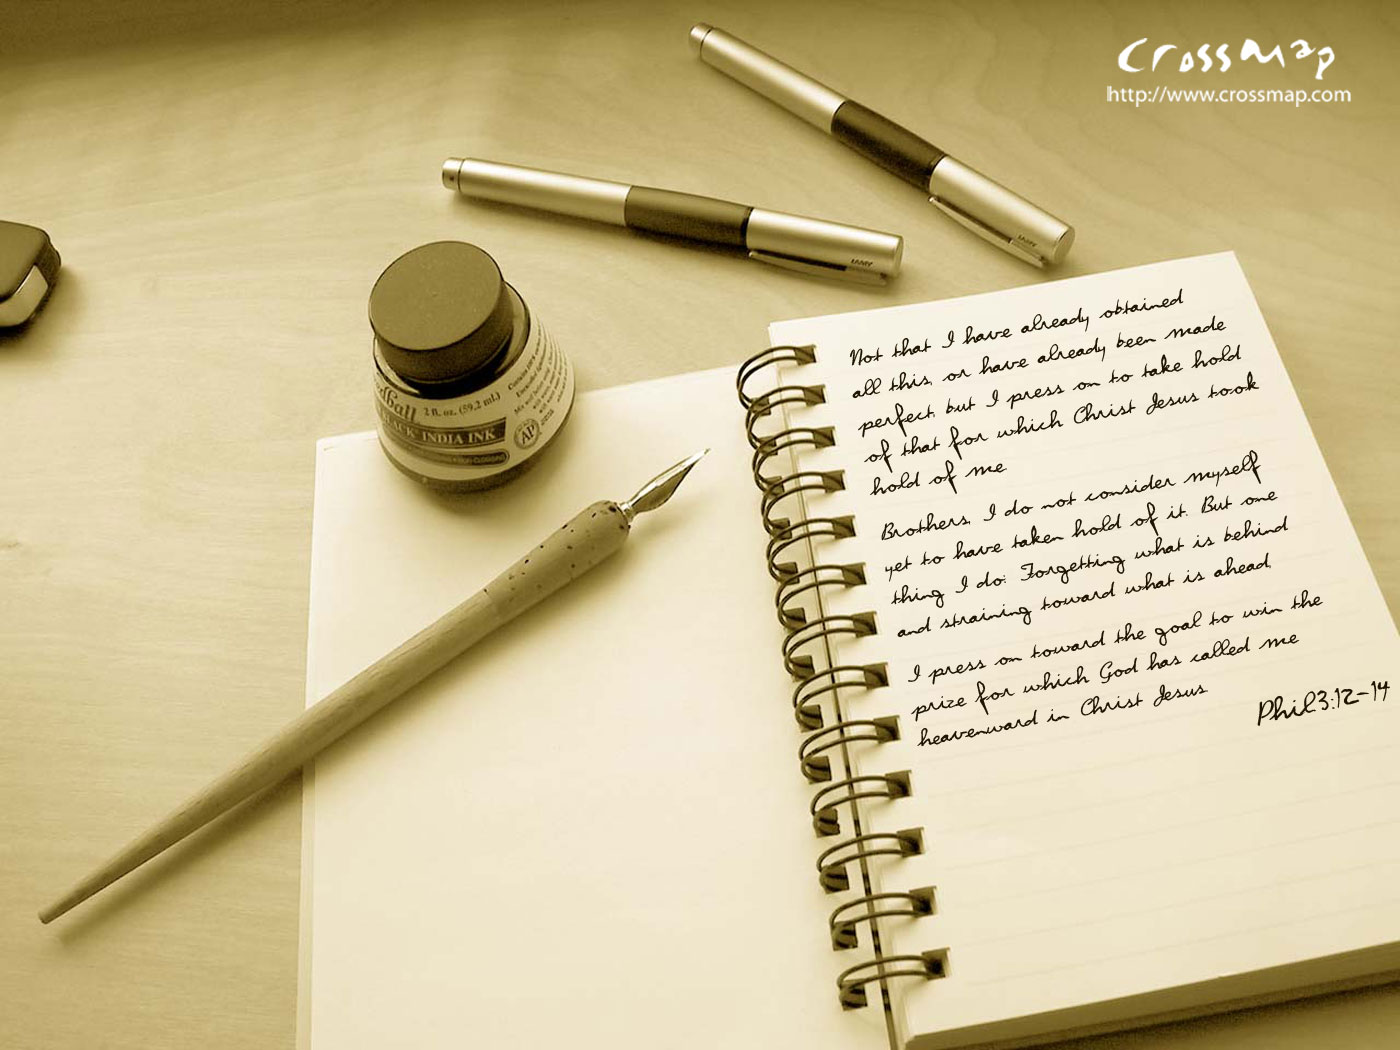 crossmap
http://www.crossmap.com
LAMY
LAMY
2 fl. oz. (59.2 ml.)
BLACK INDIA INK
AP
Not that I have already obtained
all this, or have already been made
perfect, but I press on to take hold
of that for which Christ Jesus took
hold of me
Brothers, I do not consider myself
yet to have taken hold of it. But one
thing I do: Forgetting what is behind
and straining toward what is ahead,
I press on toward the goal to win the
prize for which God has called me
heavenward in Christ Jesus
Phil3:12-14